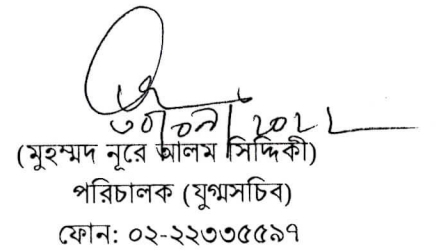 ৩০/০৯/২০২২
(মুহম্মদ নূরে আলম সিদ্দিকী)
পরিচালক (যুগ্মসচিব)
ফোন: ০২-২২৩৩৫৫৯৭